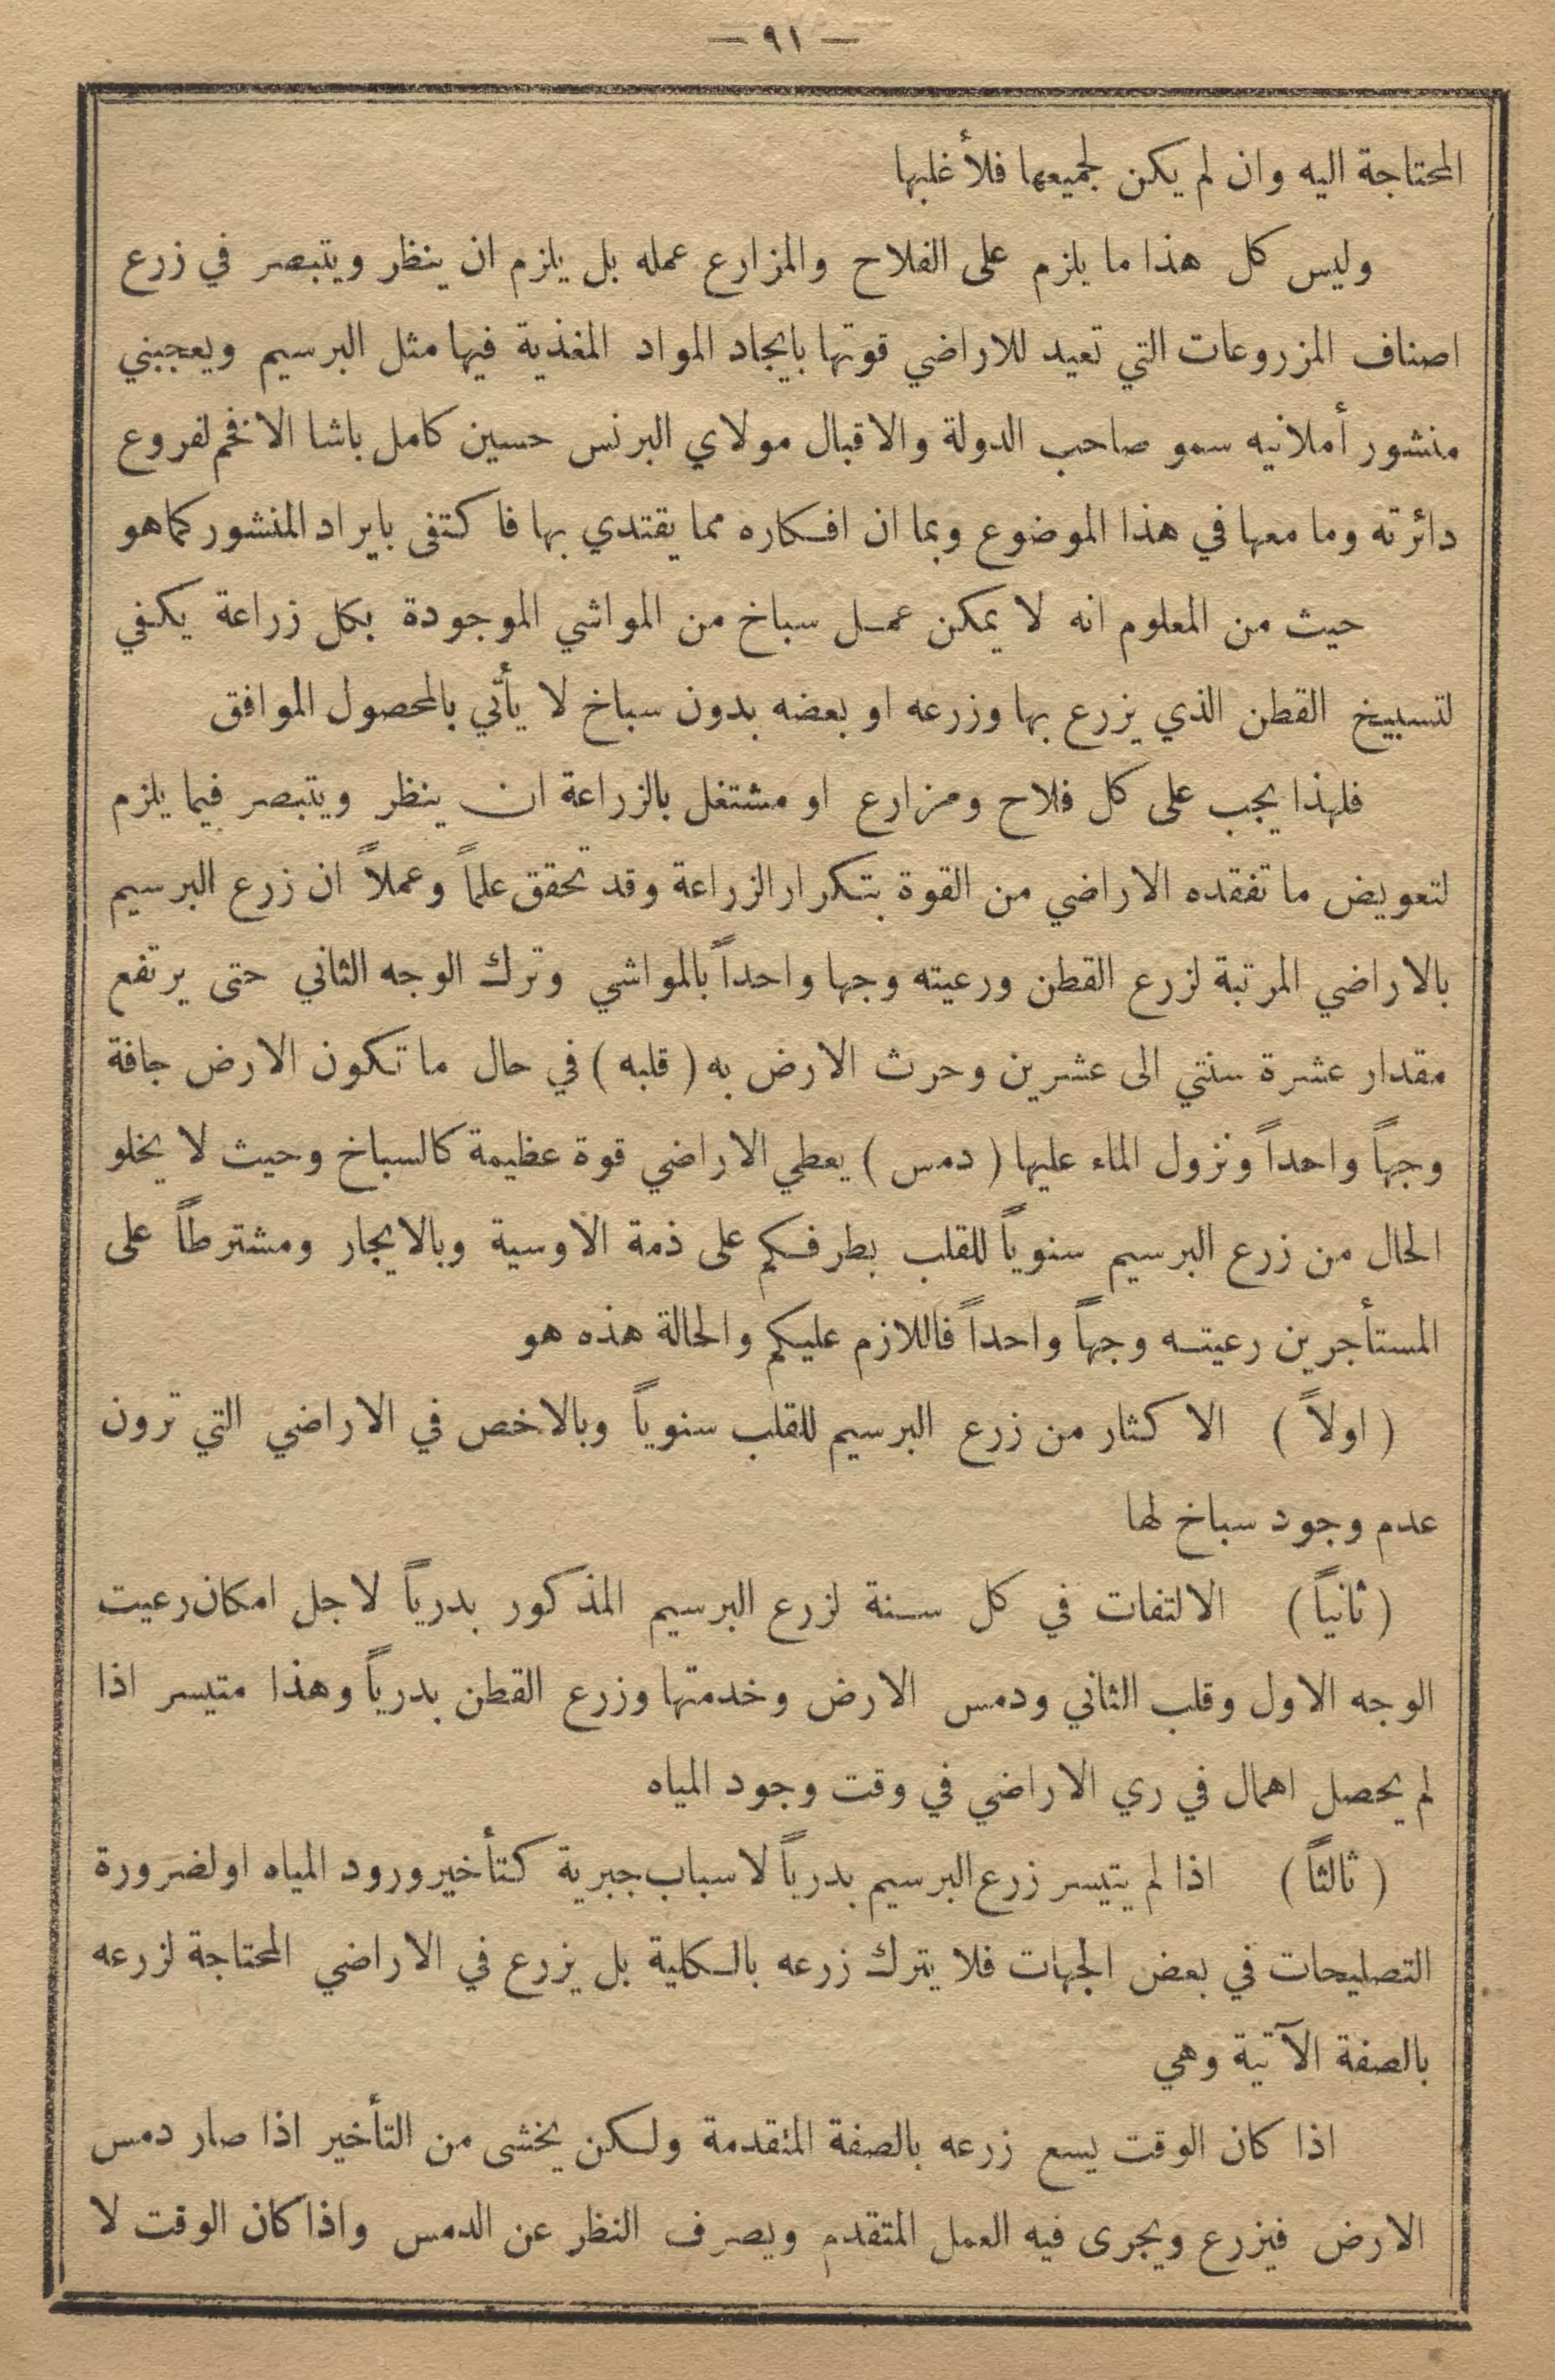 — ٩١ —
المحتاجة اليه وان لم يكن لجميعها فلأغلبها
وليس كل هذا ما يلزم على الفلاح والمزارع عمله بل يلزم ان ينظر ويتبصر في زرع
اصناف المزروعات التي تعيد للاراضي قوتها بايجاد المواد المغذية فيها مثل البرسيم ويعجبني
منشور أملانيه سمو صاحب الدولة والاقبال مولاي البرنس حسين كامل باشا الافخم لفروع
دائرته وما معها في هذا الموضوع وبما ان افكاره مما يقتدي بها فاكتفى بايراد المنشور كما هو
حيث من المعلوم انه لا يمكن عمل سباخ من المواشي الموجودة بكل زراعة يكفي
لتسبيخ القطن الذي يزرع بها وزرعه او بعضه بدون سباخ لا يأتي بالمحصول الموافق
فلهذا يجب على كل فلاح ومزارع او مشتغل بالزراعة ان ينظر ويتبصر فيما يلزم
لتعويض ما تفقده الاراضي من القوة بتكرار الزراعة وقد تحقق علماً وعملاً ان زرع البرسيم
بالاراضي المرتبة لزرع القطن ورعيته وجها واحداً بالمواشي وترك الوجه الثاني حتى يرتفع
مقدار عشرة سنتي الى عشرين وحرث الارض به ( قلبه ) في حال ما تكون الارض جافة
وجهاً واحداً ونزول الماء عليها ( دمس ) يعطي الاراضي قوة عظيمة كالسباخ وحيث لا يخلو
الحال من زرع البرسيم سنوياً للقلب بطرفكم على ذمة الاوسية وبالايجار ومشترطاً على
المستأجرين رعيته وجهاً واحداً فاللازم عليكم والحالة هذه هو
( اولاً ) الاكثار من زرع البرسيم للقلب سنوياً وبالاخص في الاراضي التي ترون
عدم وجود سباخ لها
( ثانياً ) الالتفات في كل سنة لزرع البرسيم المذكور بدرياً لاجل امكان رعيت
الوجه الاول وقلب الثاني ودمس الارض وخدمتها وزرع القطن بدرياً وهذا متيسر اذا
لم يحصل اهمال في ري الاراضي في وقت وجود المياه
( ثالثاً ) اذا لم يتيسر زرع البرسيم بدرياً لاسباب جبرية كتأخير ورود المياه او لضرورة
التصليحات في بعض الجهات فلا يترك زرعه بالكلية بل يزرع في الاراضي المحتاجة لزرعه
بالصفة الآتية وهي
اذا كان الوقت يسع زرعه بالصفة المتقدمة ولكن يخشى من التأخير اذا صار دمس
الارض فيزرع ويجرى فيه العمل المتقدم ويصرف النظر عن الدمس واذا كان الوقت لا